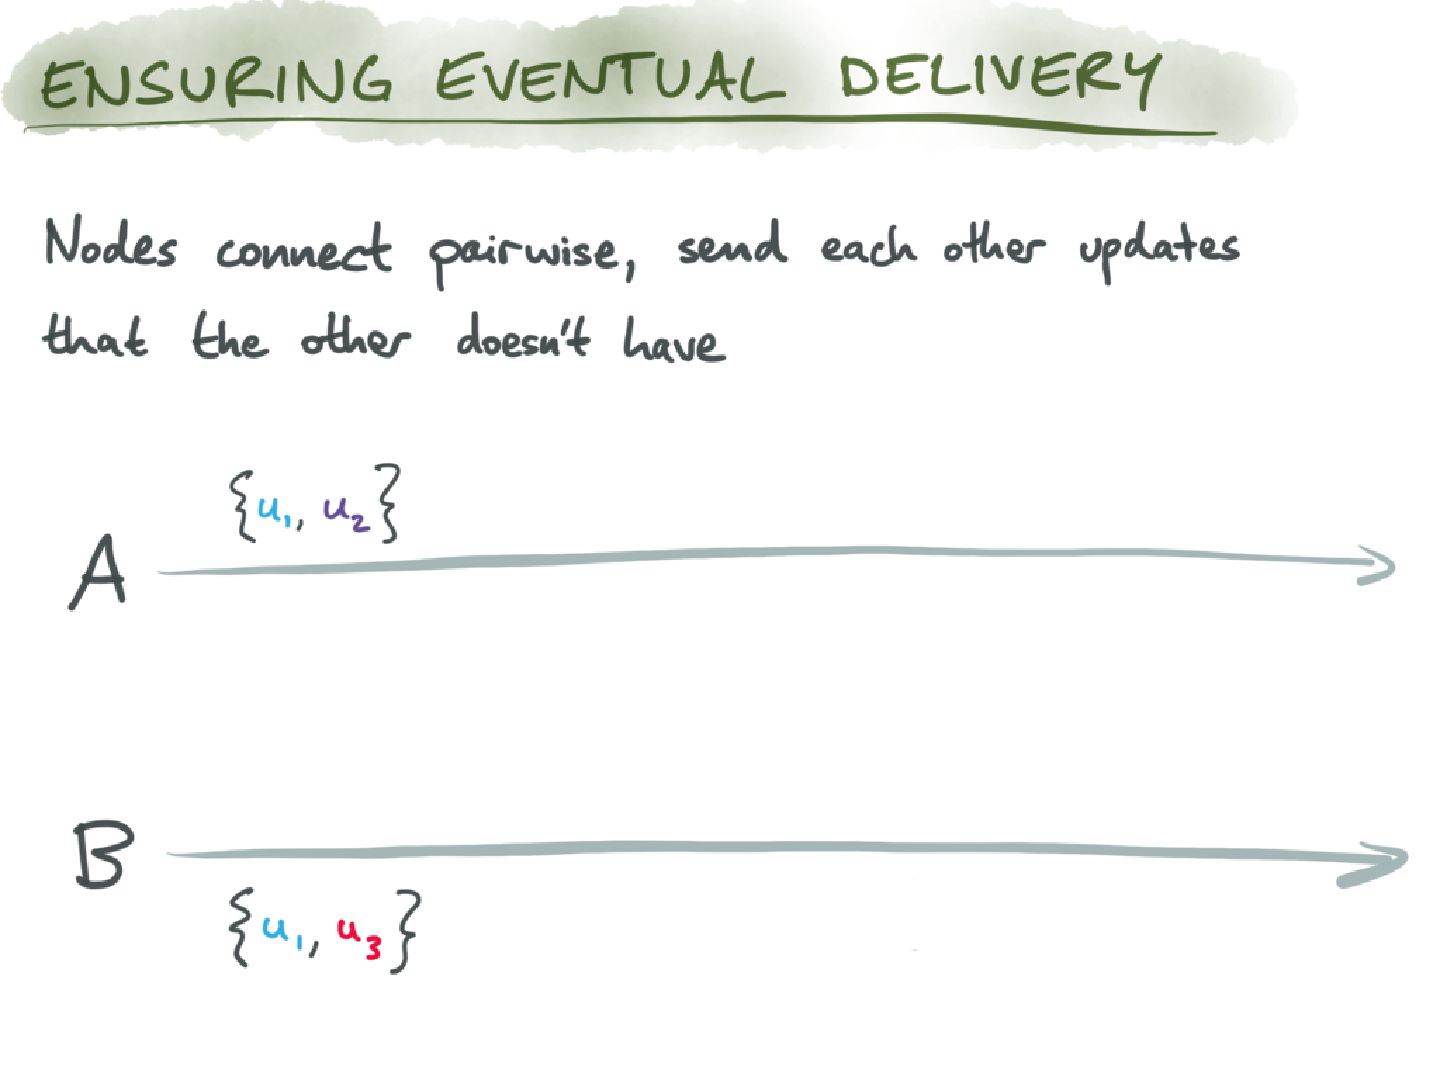 ENSURING EVENTUAL DELIVERY
Nodes connect pairwise, send each other updates
that the other doesn't have
{u₁, u₂}
A
B
{u₁, u₃}